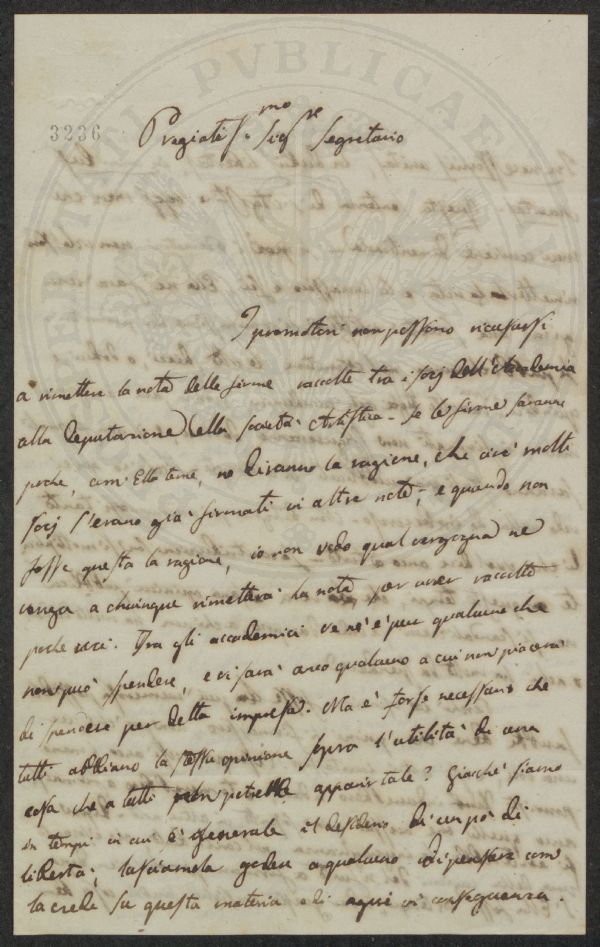 3236
Pregiatiss.mo Sig.re Segretario
I promotori non possono ricusarsi
a rimettere la nota delle firme raccolte tra i socj dell'Accademia
alla Deputazione della Società Artistica. Se le firme saranno
poche, com'Ella teme, no diranno la ragione, che cioè molti
socj s'erano già firmati in altre note; e quando non
fosse questa la ragione, io non vedo qual vergogna ne
venga a chiunque rimetterà la nota, per aver raccolto
poche voci. Tra gli accademici ve n'è pur qualcuno che
non può spendere, e vi sarà anco qualcuno a cui non piacerà
di spendere per detta impresa. Ma è forse necessario che
tutti abbiano la stessa opinione sopra l'utilità di una
cosa che a tutti potrebbe apparir tale? Giacchè siamo
in tempi in cui è generale il desiderio di un po' di
libertà; lasciamola godere a qualcuno di pensare com
la crede su questa materia e di agire in conseguenza.